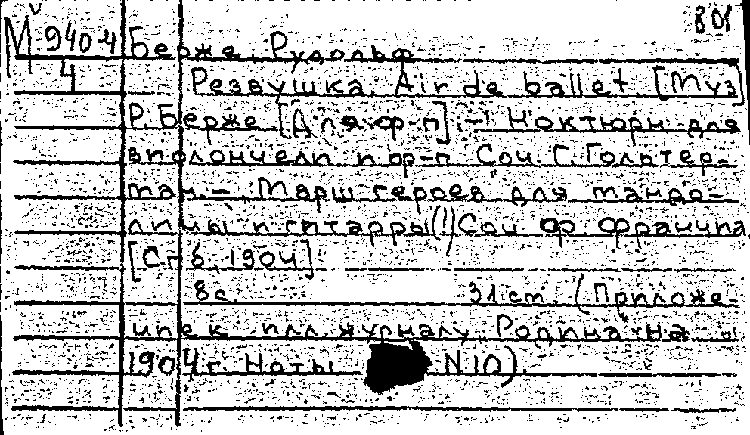 801
М 940-4
4
Берже, Рудольф
Резвушка. Air de ballet. [Муз]
Р. Берже [Для ф-п]. - Ноктюрн для
виолончели и ф-п. Соч. Г. Гольтер-
ман. - Марш героев для мандо-
лины и гитарры (!) Соч. Ф. Франчиа
[Спб, 1904]
8 с. 31 cm. (Приложе-
ние к илл. журналу "Родина" на
1904 г. Ноты N 10).